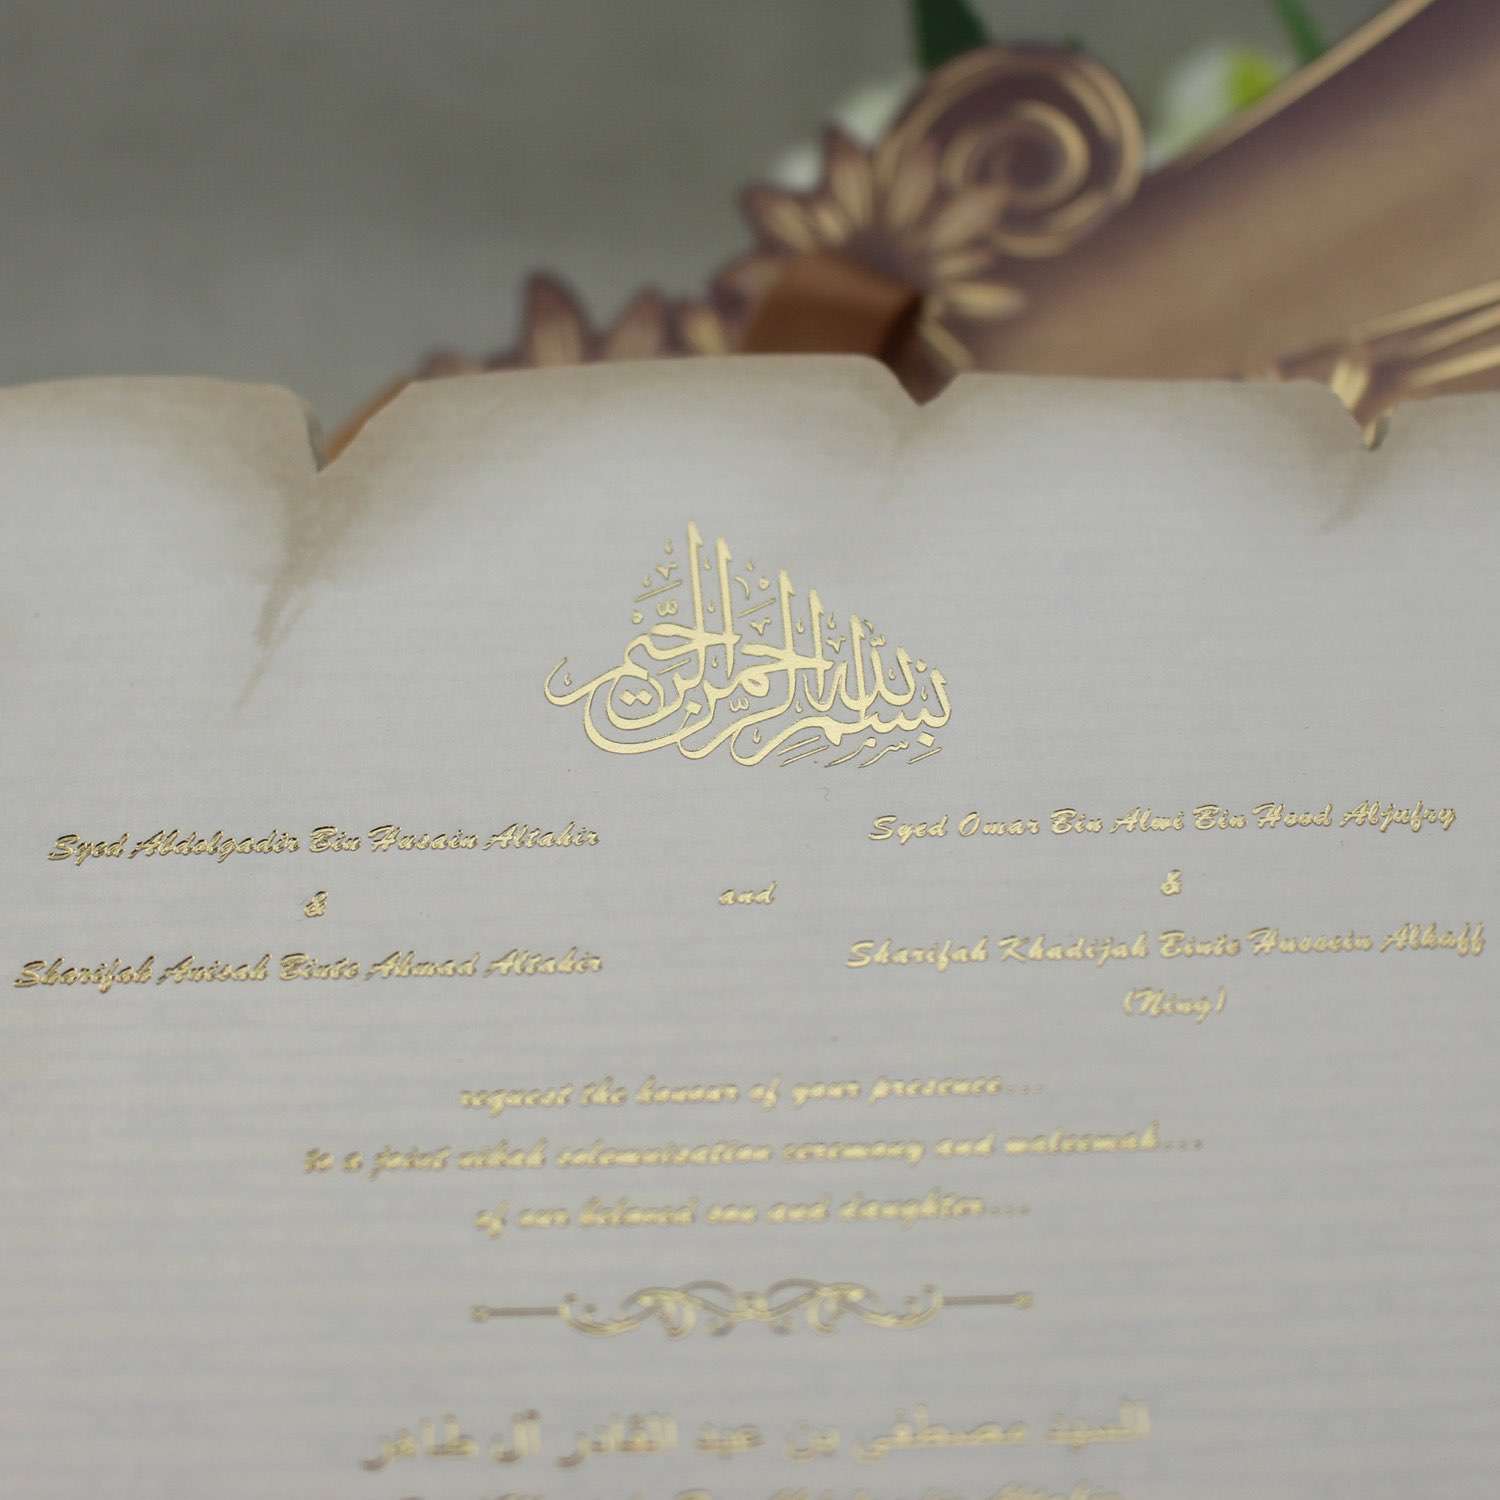 بسم الله الرحمن الرحيم
Syed Abdolgadir Bin Husain Altahir
&
Sharifah Anisah Binte Ahmad Altahir
and
Syed Omar Bin Alwi Bin Hood Aljufry
&
Sharifah Khadijah Binte Hussein Alkaff
(Ning)
request the honour of your presence...
to a joint nikah solemnisation ceremony and waleemah...
of our beloved son and daughter...
السيد مصطفى بن عبد القادر آل طاهر